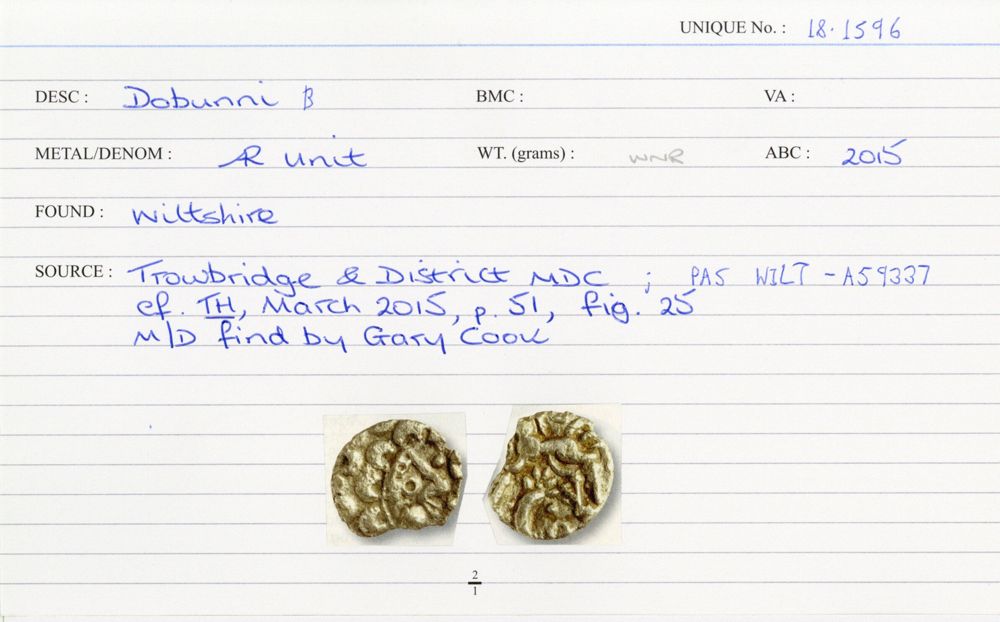 UNIQUE No. : 18.1596
DESC : Dobunni B BMC : VA :
METAL/DENOM : AR unit WT. (grams) : WNR ABC : 2015
FOUND : Wiltshire
SOURCE : Trowbridge & District MDC ; PAS WILT - A59337
cf. TH, March 2015, p. 51, fig. 25
M/D find by Gary Cook
2
1